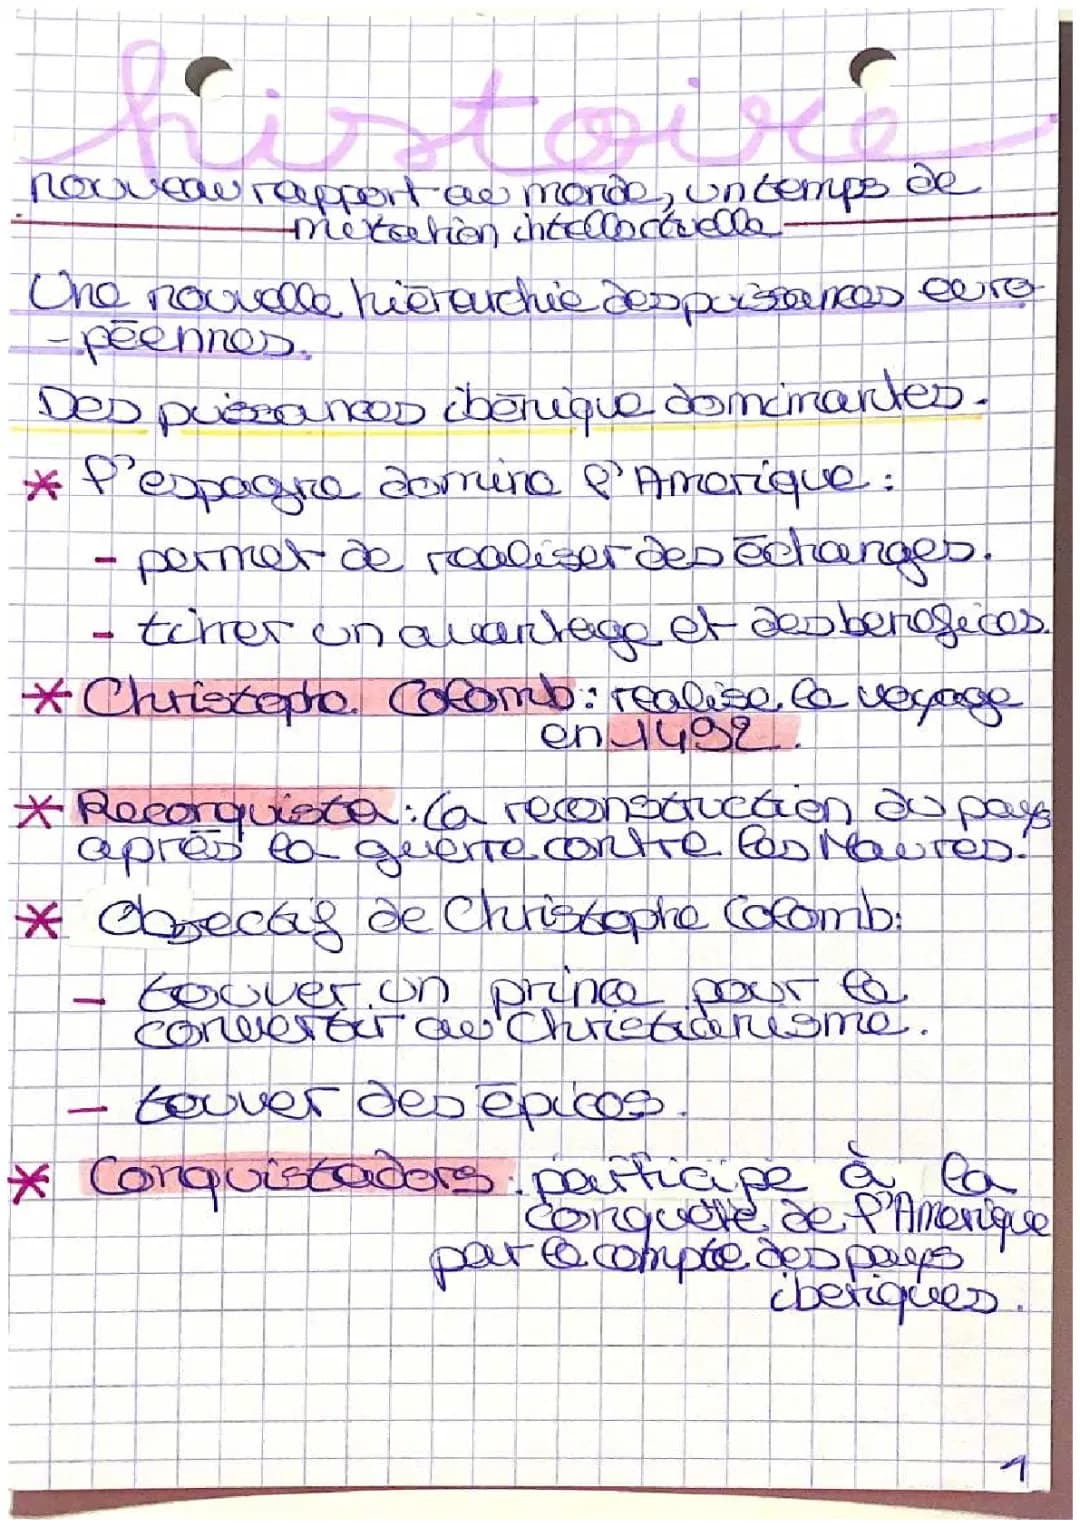 histoire
nouveau rapport au monde, un temps de
mutation intellectuelle
Une nouvelle hiérarchie des puissances euro
-péennes.
Des puissances ibérique dominantes.
* l'espagne domine l'Amerique :
- permet de realiser des échanges.
- tirrer un avantage et des benefices.
* Christophe Colomb : realise le voyage
en 1492.
* Reconquista : la reconstruction du pays
après la guerre contre les Maures.
* Objectif de Christophe Colomb :
- touver un prince pour le
convertir au Christianisme.
- touver des épices.
* Conquistadors : participe à la
conquete de l'Amerique
par le compte des pays
iberiques.
1